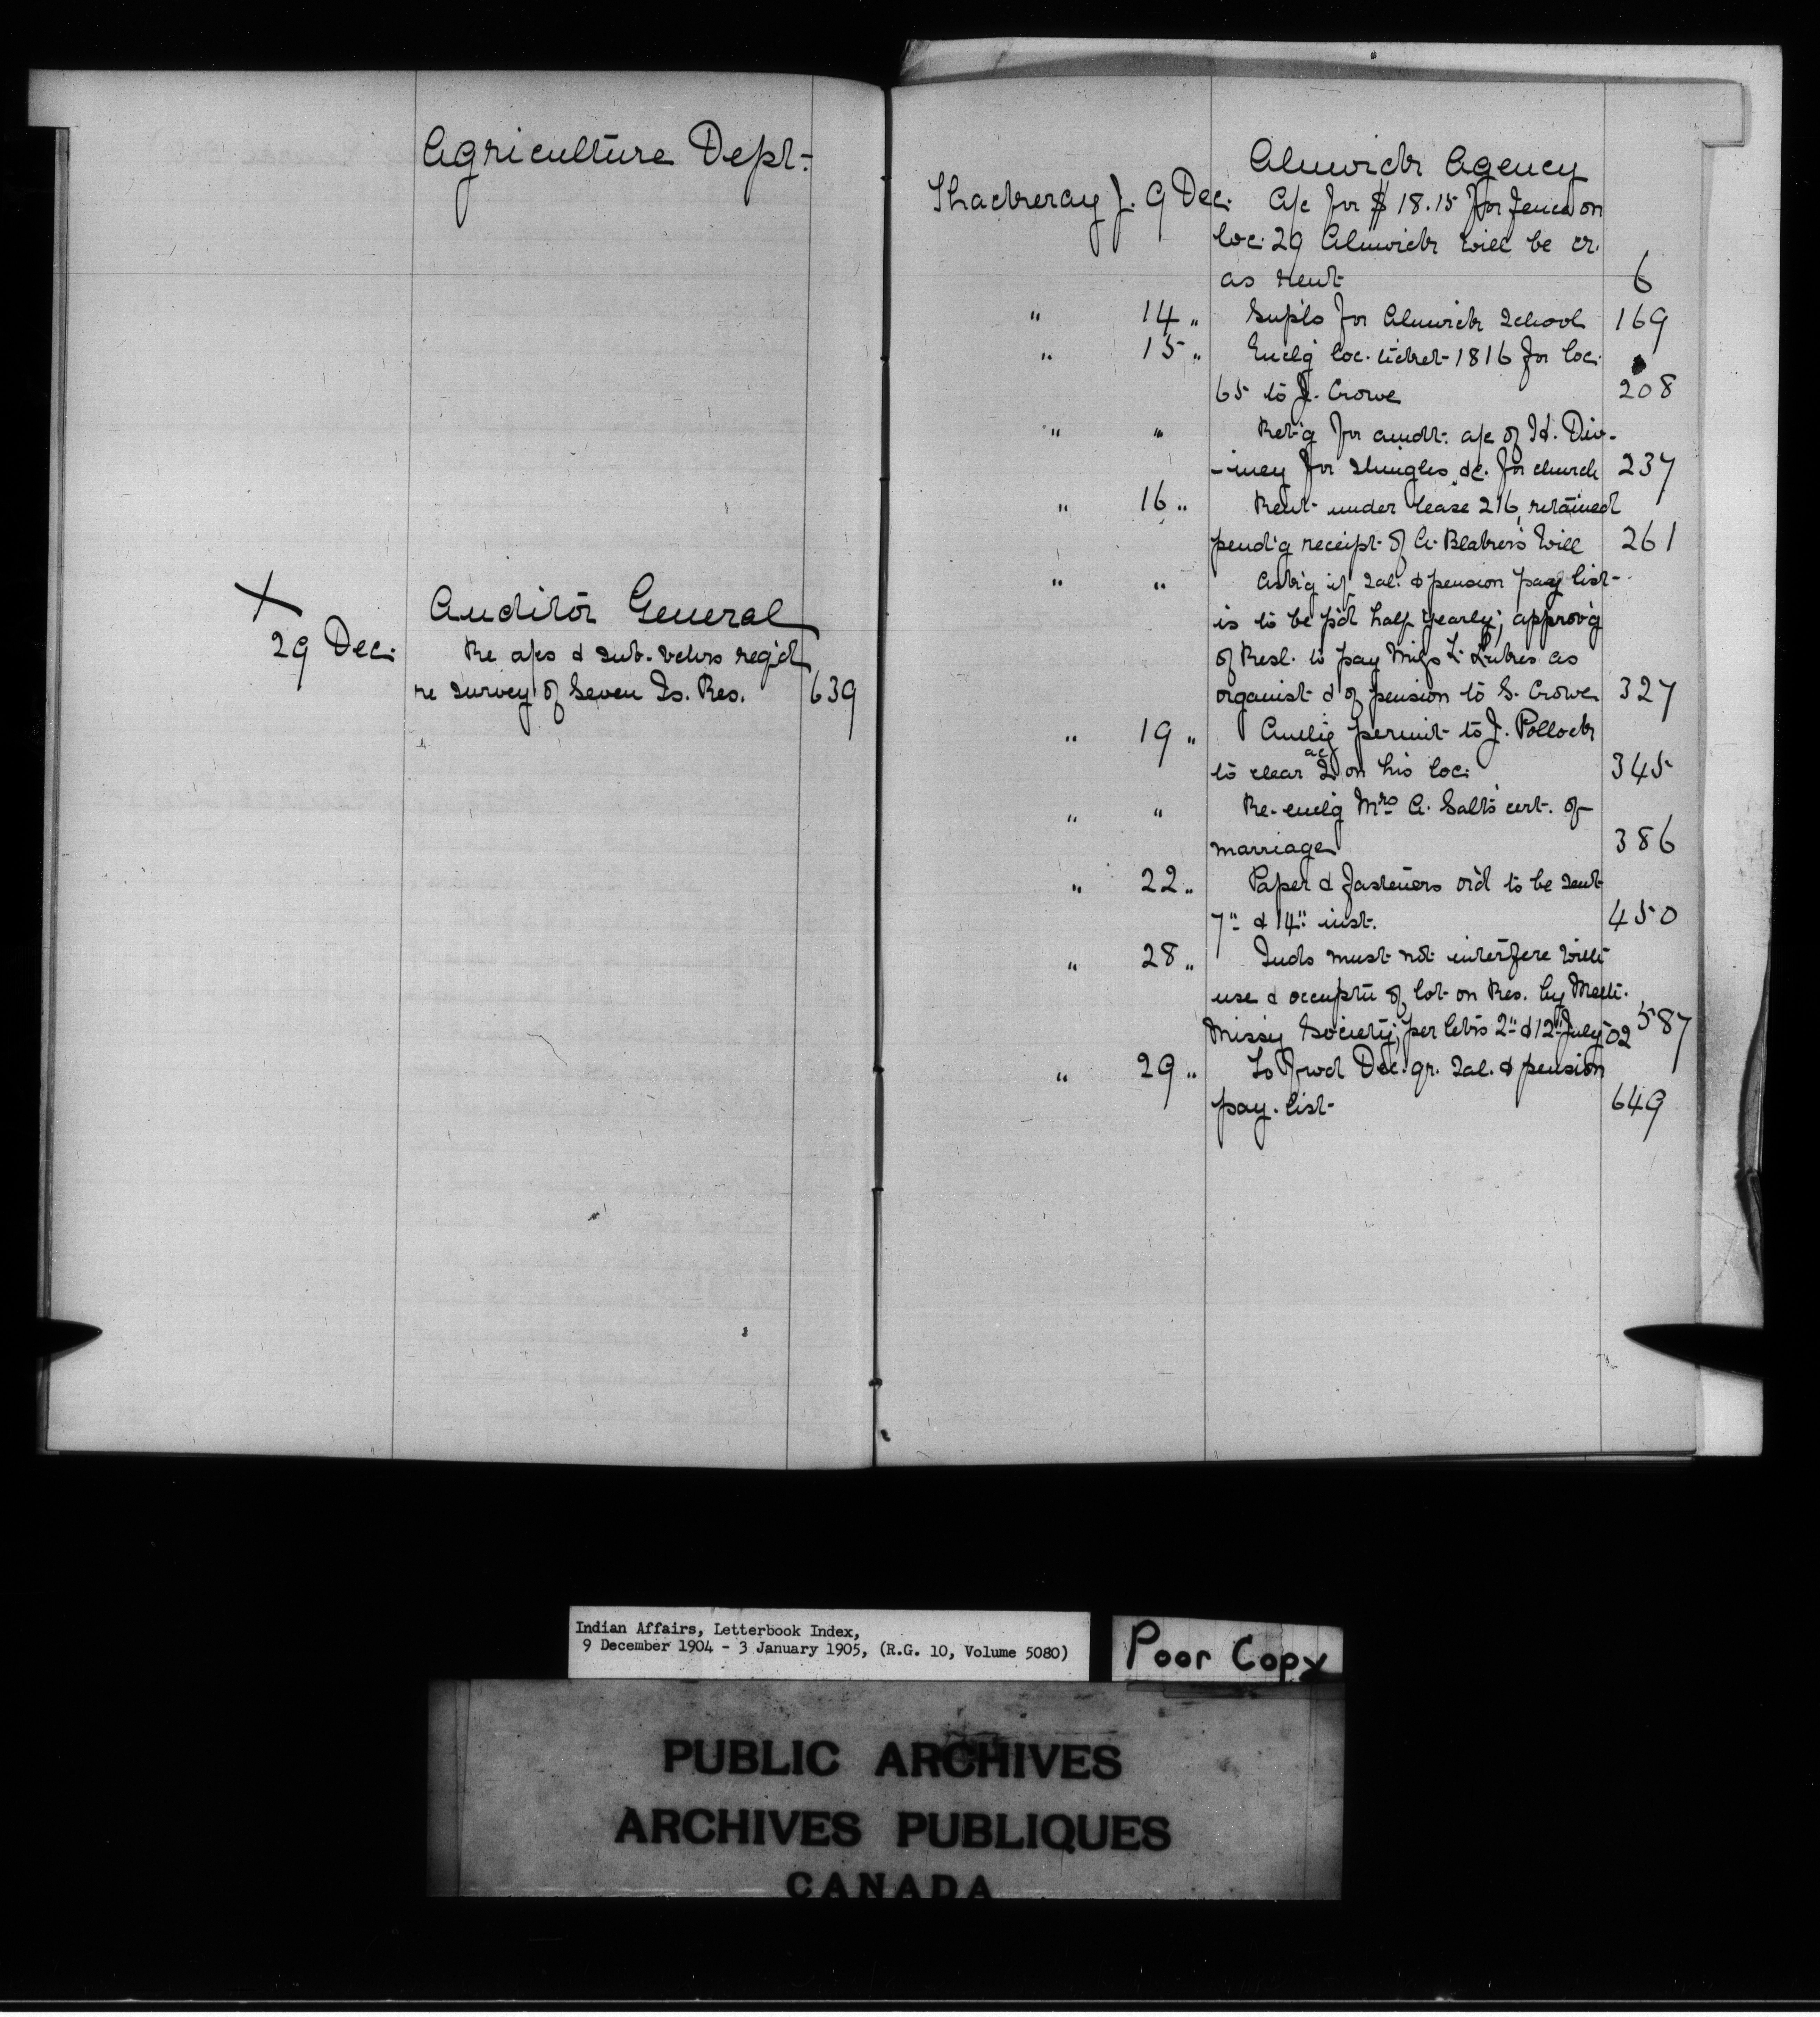 Agriculture Dept.
X
Auditor General
29 Dec. Re a/cs & sub-vchrs req'd
re survey of Seven Is. Res. 639
Alnwick Agency
Thackeray J. 9 Dec. A/c for $18.15 for fence on
loc. 29 Alnwick will be cr.
as rent 6
" 14 " Supls for Alnwick School 169
" 15 " Enclg loc. ticket 1816 for loc.
65 to J. Crowe 208
" " Ret'g for amdt. a/c of Hd. Div-
-iney for shingles &c. for church 237
" 16 " Rent under lease 216, retained
pend'g receipt of A. Blaker's Will 261
" " Ask'g if sal. & pension pay list
is to be p'd half yearly; approv'g
of Resl. to pay Miss L. as
organist & of pension to S. Crowe 327
" 19 " Authg permit to J. Pollock
to clear 2 ac on his loc. 345
" " Re-enclg Mrs A. Salt's cert. of
marriage 386
" 22 " Paper & fasteners or'd to be sent
7" & 14" inst. 450
" 28 " Inds must not interfere with
use & occuptn of lot on Res. by Meth.
Missy Society; per letrs 2" & 12" July 02 587
" 29 " To fwd Dec. qr. sal. & pension
pay-list 649
Indian Affairs, Letterbook Index,
9 December 1904 - 3 January 1905, (R.G. 10, Volume 5080)
Poor Copy
PUBLIC ARCHIVES
ARCHIVES PUBLIQUES
CANADA